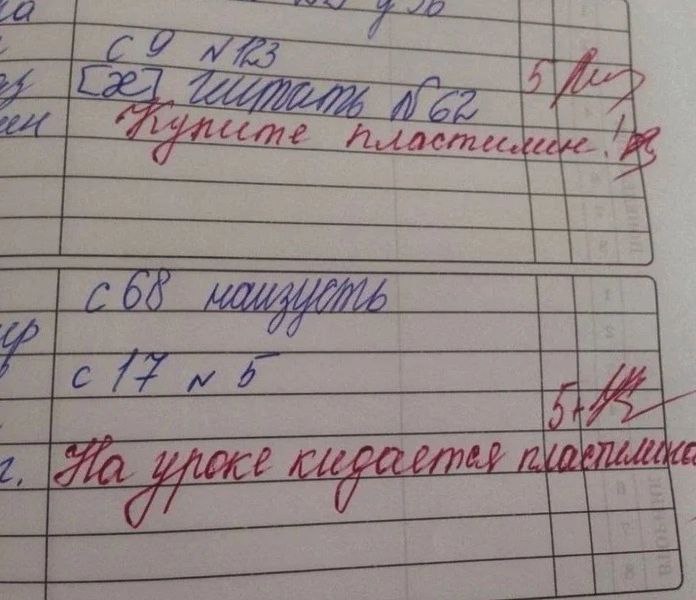 с 9 N 123
5
[æ] читать N 62
Купите пластилин!
с 68 наизусть
с 17 N 5
5+
На уроке кидается пластилина